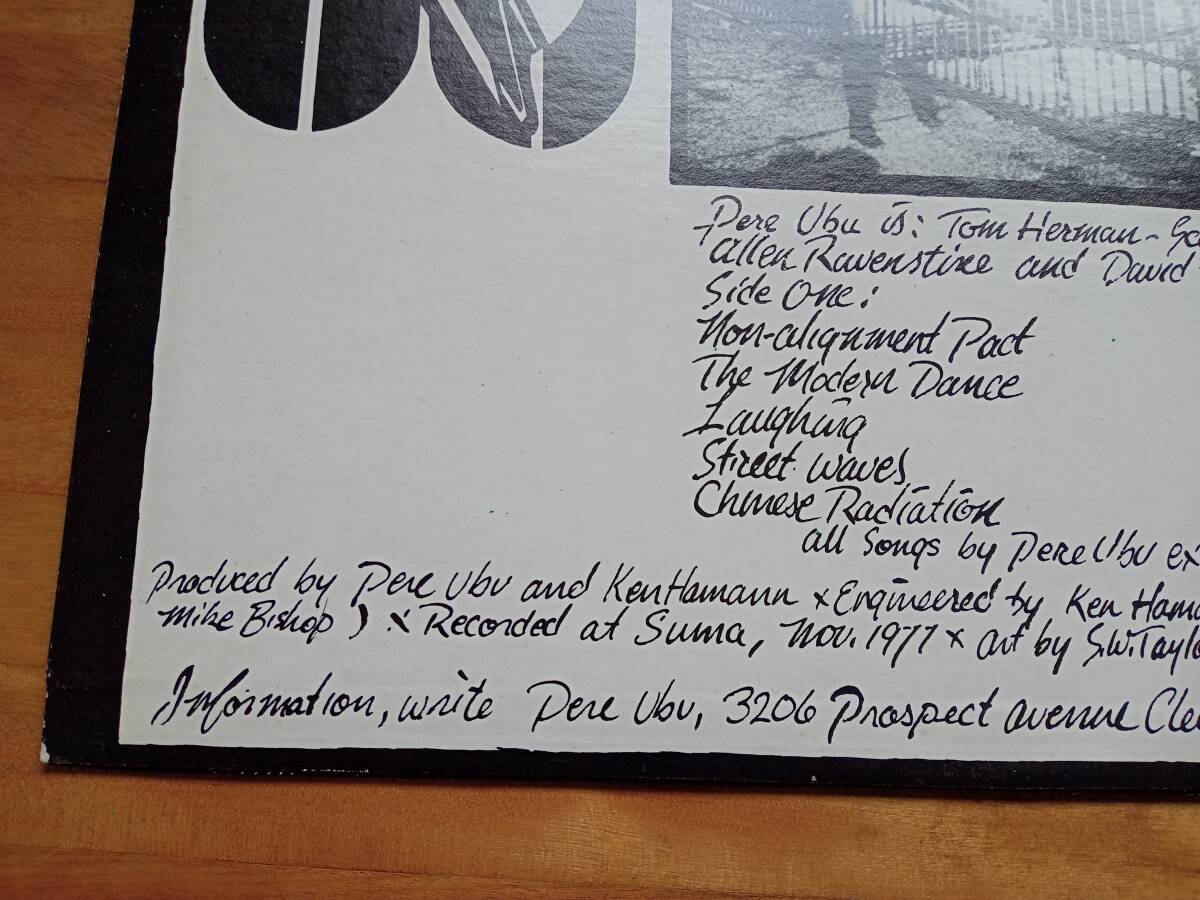 Pere Ubu is: Tom Herman - Sc
allen Ravenstine and David
Side One:
Non-alignment Pact
The Modern Dance
Laughing
Street waves
Chinese Radiation
all songs by Pere Ubu ex
Produced by Pere Ubu and Ken Hamann x Engineered by Ken Hama
Mike Bishop) x Recorded at Suma, Nov. 1977 x art by S.W. Taylo
Information, write Pere Ubu, 3206 Prospect avenue Cle